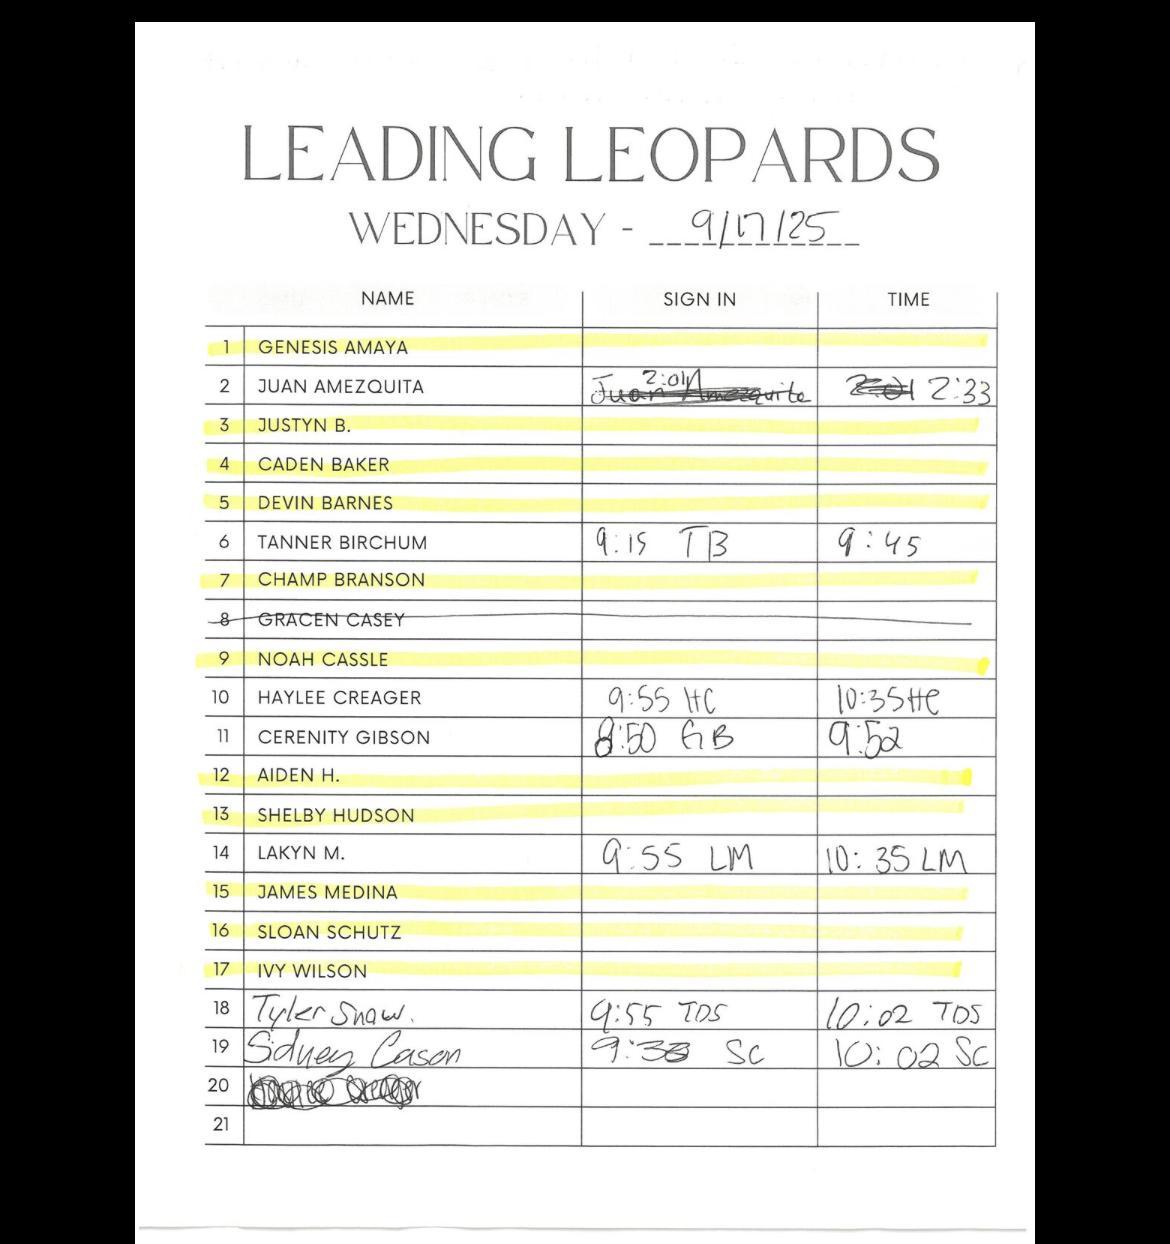 LEADING LEOPARDS
WEDNESDAY - 9/17/25
NAME SIGN IN TIME
1 GENESIS AMAYA
2 JUAN AMEZQUITA Juan Amezquita 2:01 2:01 2:33
3 JUSTYN B.
4 CADEN BAKER
5 DEVIN BARNES
6 TANNER BIRCHUM 9:15 TB 9:45
7 CHAMP BRANSON
8 GRACEN CASEY
9 NOAH CASSLE
10 HAYLEE CREAGER 9:55 HC 10:35 HC
11 CERENITY GIBSON 8:50 GB 9:52
12 AIDEN H.
13 SHELBY HUDSON
14 LAKYN M. 9:55 LM 10:35 LM
15 JAMES MEDINA
16 SLOAN SCHUTZ
17 IVY WILSON
18 Tyler Shaw. 9:55 TDS 10:02 TDS
19 Sidney Cason SC 10:02 SC
20
21